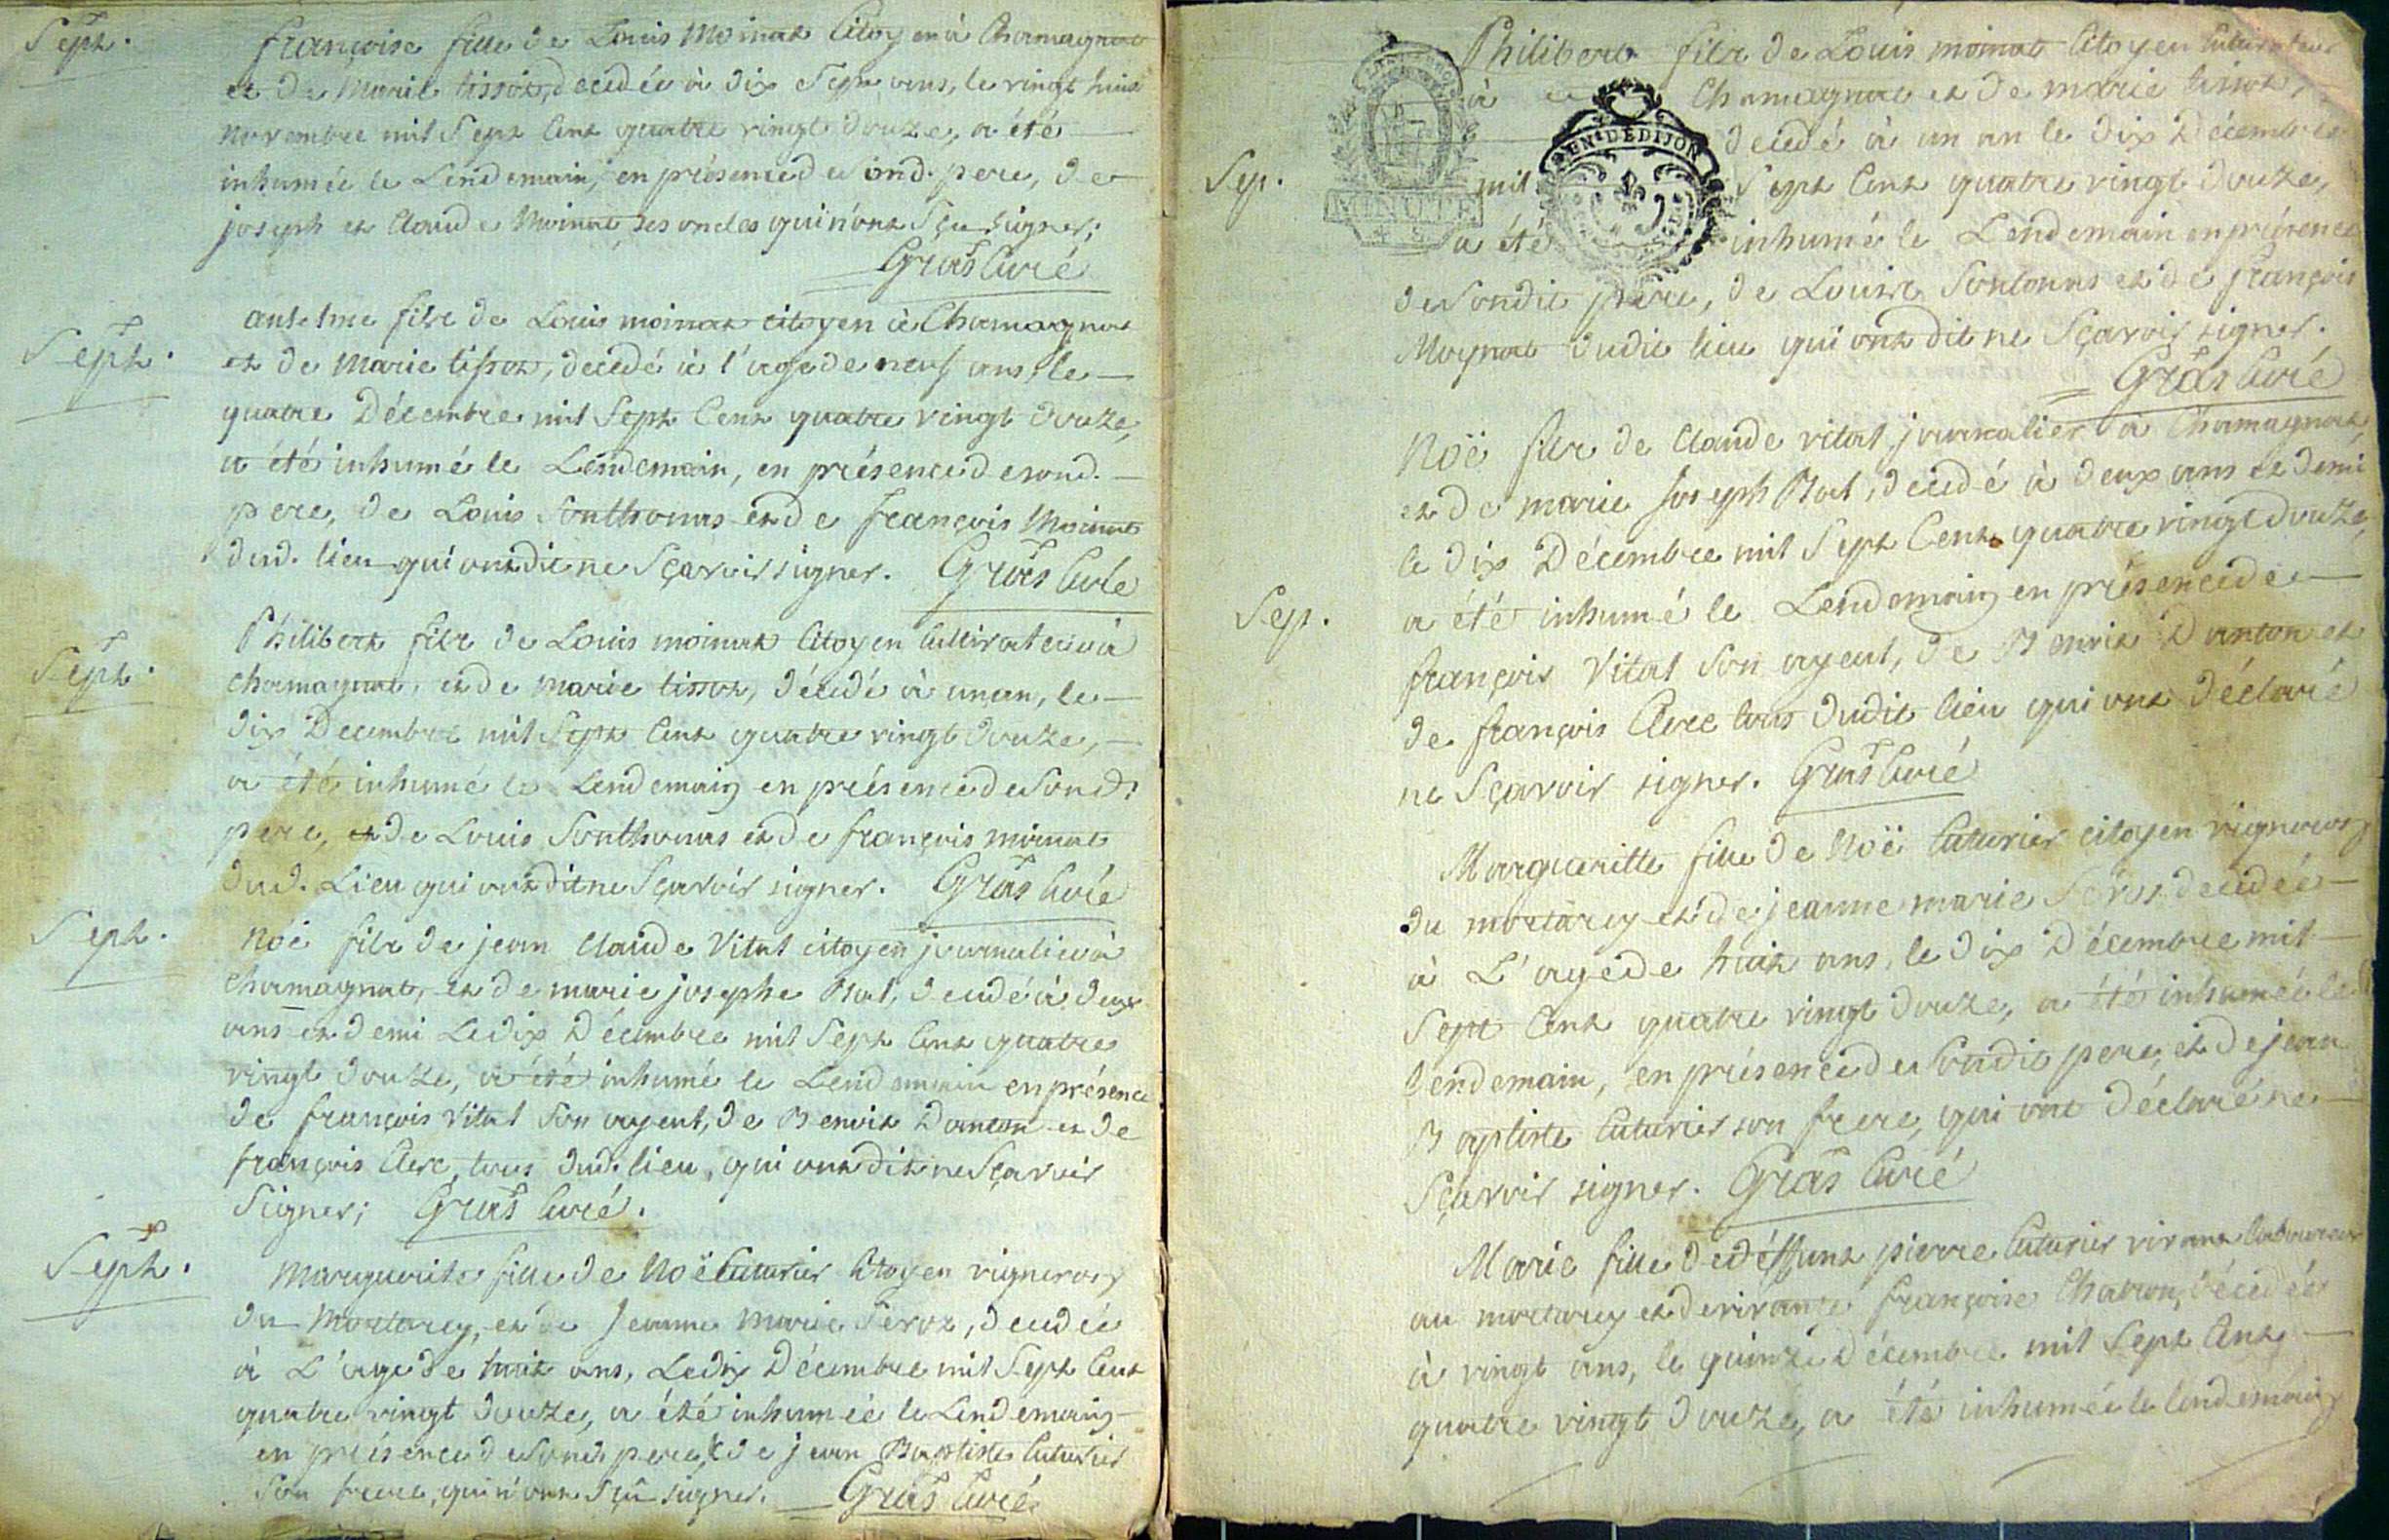 Sept.
françoise fille de Louis Moinat Citoyen à Chamagnat
et de Marie tissot, decedée à dix Sept ans, le vingt huit
novembre mil Sept Cent quatre vingt douze, a été
inhumée le Lendemain, en présence de sond. pere, de
joseph et Claude Moinat ses oncles qui n'ont Sçu signer;
Gras Curé
Sept.
antelme fils de Louis moinat citoyen à Chamagnat
et de Marie tissot, decedé à l'age de neuf ans, le
quatre Décembre mil Sept Cent quatre vingt douze,
a été inhumé le Lendemain, en présence de sond.
pere, de Louis Sonthonas et de françois Moinat
dud. lieu qui ont dit ne Sçavoir signer. Gras Curé
Sept.
Philibert fils de Louis moinat Citoyen Cultivateur à
chamagnat, et de Marie tissot, décédé à un an, le
dix Decembre mil Sept Cent quatre vingt douze,
a été inhumé le Lendemain en présence de Sond.
pere, et de Louis Sonthonas et de françois moinat
dud. Lieu qui ont dit ne Sçavoir signer. Gras Curé
Sept.
Noé fils de jean Claude Vital citoyen journalier à
Chamagnat, et de marie josephe Bal, decedé à deux
ans et demi Le dix Décembre mil Sept Cent quatre
vingt douze, a été inhumé le Lendemain en présence
de françois Vital Son ayeul, de Benoit Danton et de
françois Clerc, tous dud. lieu, qui ont dit ne Sçavoir
Signer; Gras Curé.
Sept.
Marguerite fille de Noë Cuturier Citoyen vigneron
du Mortarey, et de Jeanne Marie Seroz, decedée
à L'age de huit ans, Le dix Décembre mil Sept Cent
quatre vingt douze, a été inhumée le Lendemain
en présence de Sond. pere & de jean Baptiste Cuturier
Son frere, qui n'ont Sçû signer. Gras Curé
Philibert fils de Louis moinat Citoyen Cultivateur
à Chamagnat et de marie tissot,
GEN. DE DIJON
decedé à un an le dix Décembre
Sep.
mil Sept Cent quatre vingt douze,
MINUTE
a été inhumé le Lendemain en présence
de Sondit pere, de Louis Sontonas et de françois
Moynat dudit lieu qui ont dit ne Sçavoir signer.
Gras Curé
Noë fils de Claude vital journalier à Chamagnat
et de marie Joseph Bal, decedé à deux ans et demi
le dix Décembre mil Sept Cent quatre vingt douze,
Sep.
a été inhumé le Lendemain en présence de
françois Vital Son ayeul, de Benoit Danton et
de françois Clerc tous dudit lieu qui ont déclaré
ne Sçavoir signer. Gras Curé
Margueritte fille de Noë Cuturier citoyen vigneron
du mortarey et de jeanne marie Seroz decedée
à L'age de huit ans, le dix Décembre mil
Sept Cent quatre vingt douze, a été inhumée le
Lendemain, en présence de Sondit pere, et de jean
Baptiste Cuturier son frere, qui ont déclaré ne
Sçavoir signer. Gras Curé
Marie fille de déffunt pierre Cuturier vivant laboureur
au mortarey et de vivante françoise Chatron, décédée
à vingt ans, le quinze Décembre mil Sept Cent
quatre vingt douze, a été inhumée le lendemain